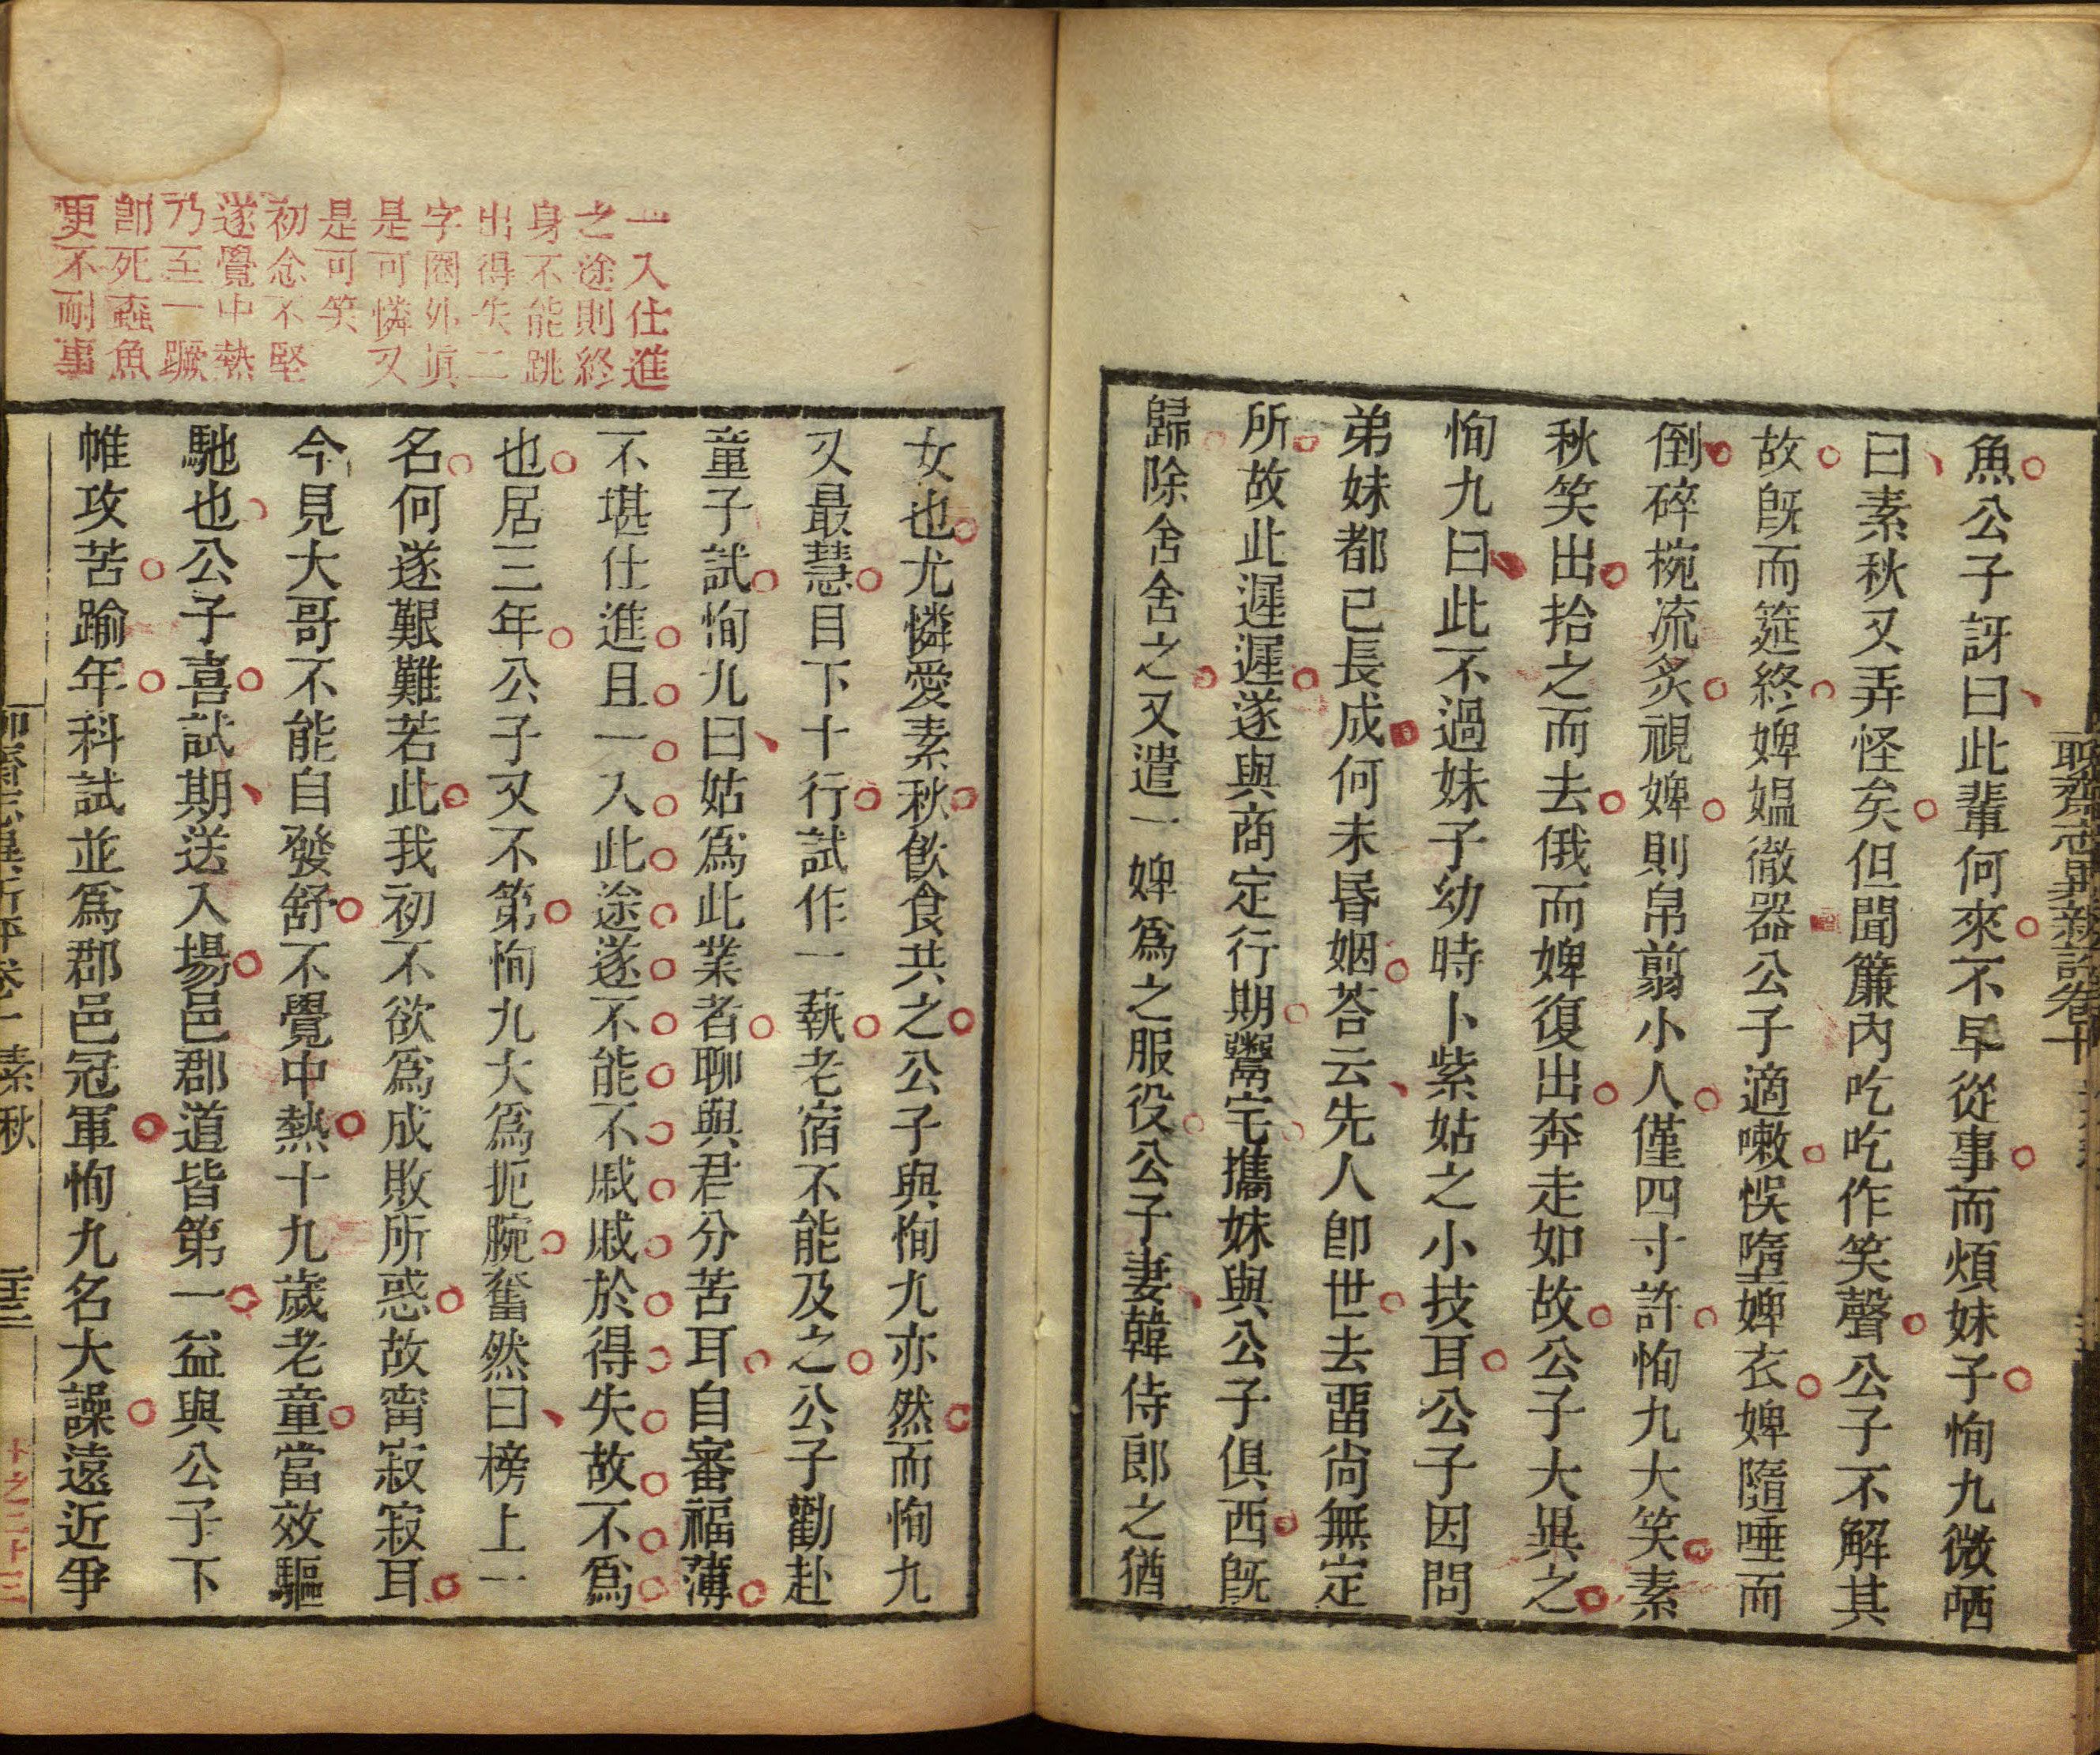 魚公子訝曰此輩何來不早從事而煩妹子恂九微哂
曰素秋又弄怪矣但聞簾內吃吃作笑聲公子不解其
故旣而筵終婢媪徹器公子適嗽悞墮婢衣婢隨唾而
倒碎椀流炙視婢則帛翦小人僅四寸許恂九大笑素
秋笑出拾之而去俄而婢復出奔走如故公子大異之
恂九曰此不過妹子幼時卜紫姑之小技耳公子因問
弟妹都已長成何未昬姻荅云先人卽世去畱尙無定
所故此遲遲遂與商定行期鬻宅攜妹與公子俱西旣
歸除舍舍之又遣一婢爲之服役公子妻韓侍郎之猶
聊齋志異新評卷十
一入仕進
之途則終
身不能跳
出得失二
字圈外眞
是可憐又
是可笑
初念不堅
遂覺中熱
乃至一蹶
卽死蠧魚
更不耐事
女也尤憐愛素秋飮食共之公子與恂九亦然而恂九
又最慧目下十行試作一蓺老宿不能及之公子勸赴
童子試恂九曰姑爲此業者聊與君分苦耳自審福薄
不堪仕進且一入此途遂不能不戚戚於得失故不爲
也居三年公子又不第恂九大爲扼腕奮然曰榜上一
名何遂艱難若此我初不欲爲成敗所惑故甯寂寂耳
今見大哥不能自發舒不覺中熱十九歲老童當效驅
馳也公子喜試期送入場邑郡道皆第一益與公子下
帷攻苦踰年科試並爲郡邑冠軍恂九名大譟遠近爭
聊齋志異新評卷十 素秋
十之二十三